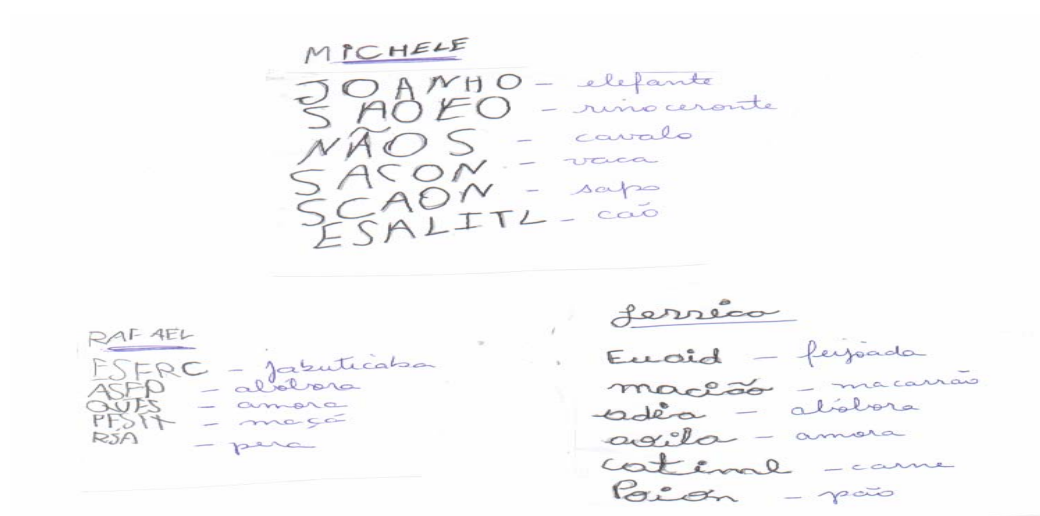 MICHELE
JOANHO - elefante
SAOEO - rinoceronte
NÃOS - cavalo
SACON - vaca
SCAON - sapo
ESALITL - caõ
RAFAEL
ESERC - jabuticaba
ASEP - abóbora
QUES - amora
- maçã
RSA - pera
Jessica
Euoid - feijoada
macião - macarrão
adéa - abóbora
axila - amora
catiml - carne
Poion - pão